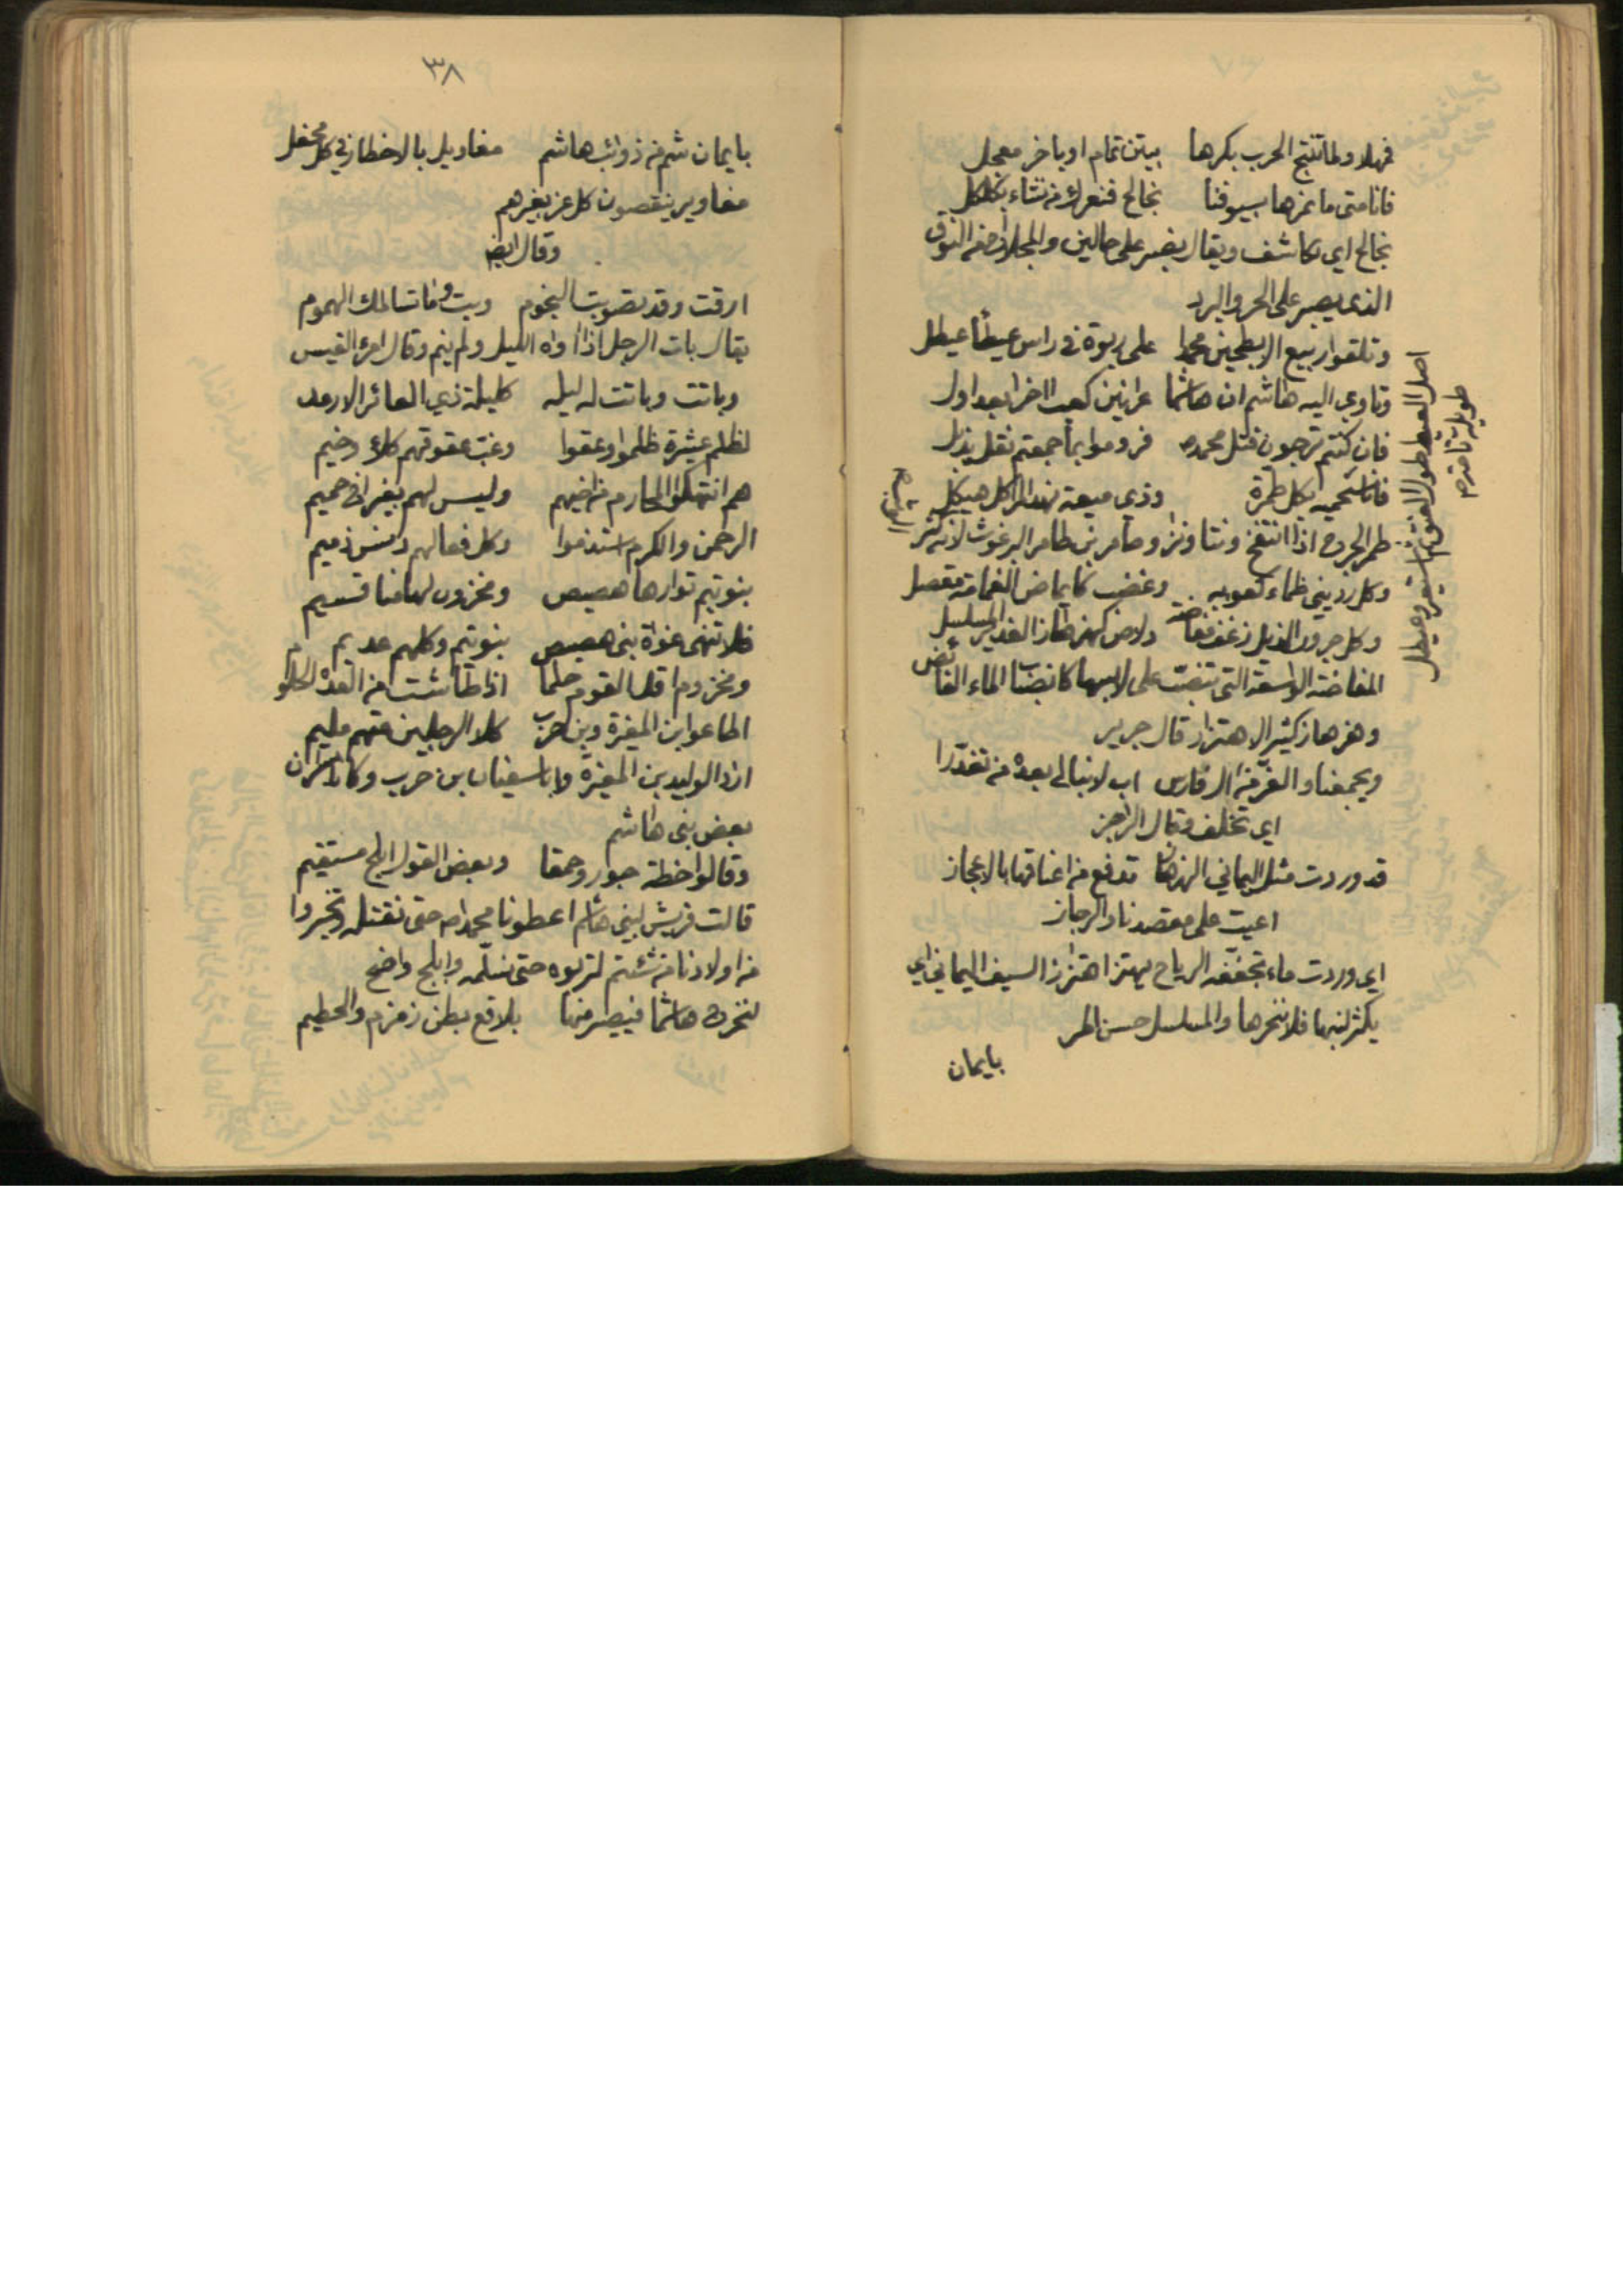 فهلا ولما تنتج الحرب بكرها بيتن تمام او باخر معجل
فانا متى ما نمرها بسيوفنا نجالح فنعرك من نشاء بكلكل
نجالح اي نكاشف ويقال يصبر على حالين والمجلاح من النوق
الذي يصبر على الحر والبرد
وتلقوا ربيع الابطحين محمدا على ربوة في راس عيطاء عيطل
وتاوي اليه هاشم ان هاشما عرانين كعب اخرا بعد اول
فان كنتم ترجون قتل محمد ص فروموا بما جمعتم نقل يذبل
فانا سنحميه بكل طمرة وذي ميعة نهد المراكل هيكل
طمر الجرح اذا انتفخ ونتا ونزا وطامر بن طامر البرغوث لانه
وكل رديني ظماء كعوبه وعضب كايماض الغمامة مقصل
وكل جرور الذيل زغف مفاضة دلاص كهزهاز الغدير المسلسل
المفاضة الواسعة التي تنصب على لابسها كانصباب الماء الفائض
وهزهاز كثير الاهتزاز قال جرير
ويجمعنا والغر من ال فارس اب لا نبالي بعده من تغدرا
اي تخلف وقال الراجز
قد وردت مثل اليماني الهزهاز تدفع من اعناقها بالاعجاز
اعيت على مقصدنا والرجاز
اي وردت ماء تجففه الرياح يهتز اهتزاز السيف اليماني اي
يكثر لبنها فلا ننحرها والمسلسل حسن المر
بايمان
اصل العيط طول العنق ثم استعير وعيطل
طويلة تا
٣٨
بايمان شم من ذوائب هاشم مغاويل بالاخطار في كل محفل
مغاوير ينقصون كل عز بغيرهم
وقال ايضا
ارقت وقد تصوبت النجوم وبت وما تسالمك الهموم
يقال بات الرجل اذا اواه الليل ولم ينم وقال امرؤ القيس
وباتت وباتت له ليله كليلة ذي العائر الارمد
لظلم عشيرة ظلموا وعقوا وغب عقوقهم كلاء وخيم
هم انتهكوا المحارم من اخيهم وليس لهم بغير اخ حميم
الى الرحمن والكرم استذموا وكل فعالهم دنس ذميم
بنو تيم توارها هصيص ومخزوم لها منا قسيم
فلا تنهى غواة بني هصيص بنو تيم وكلهم عديم
ومخزوم اقل القوم حلما اذا طاشت من العدة الحلوم
اطاعوا ابن المغيرة وبن حرب كلا الرجلين متهم مليم
اراد الوليد بن المغيرة وابا سفيان بن حرب وكانا
بعض بني هاشم
وقالوا خطة جور وحمقا وبعض القول ابلج مستقيم
قالت قريش لبني هاشم اعطونا محمدا ص حتى نقتله وتخيروا
من اولادنا من شئتم لتربوه حتى نسلمه وابلج واضح
لنخرج هاشما فيصير منها بلاقع بطن زمزم والحطيم